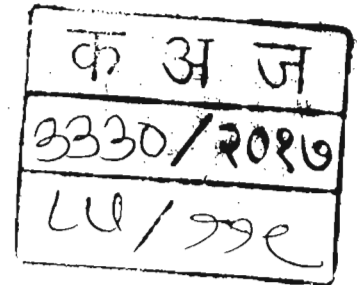 क अ ज
३३३०/२०१७
८५/११९